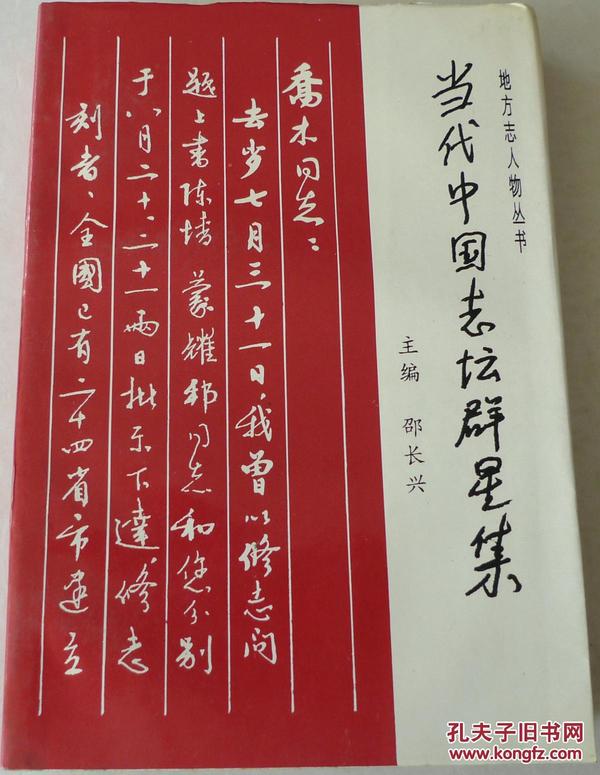 地方志人物丛书
当代中国志坛群星集
主编 邵长兴
乔木同志：
去岁七月三十一日，我曾以修志问
题上书陈情 蒙耀邦同志和您分别
于八月二十、二十一两日批示下达，修志
刻者、全國已有二十四省市建立
孔夫子旧书网
www.kongfz.com